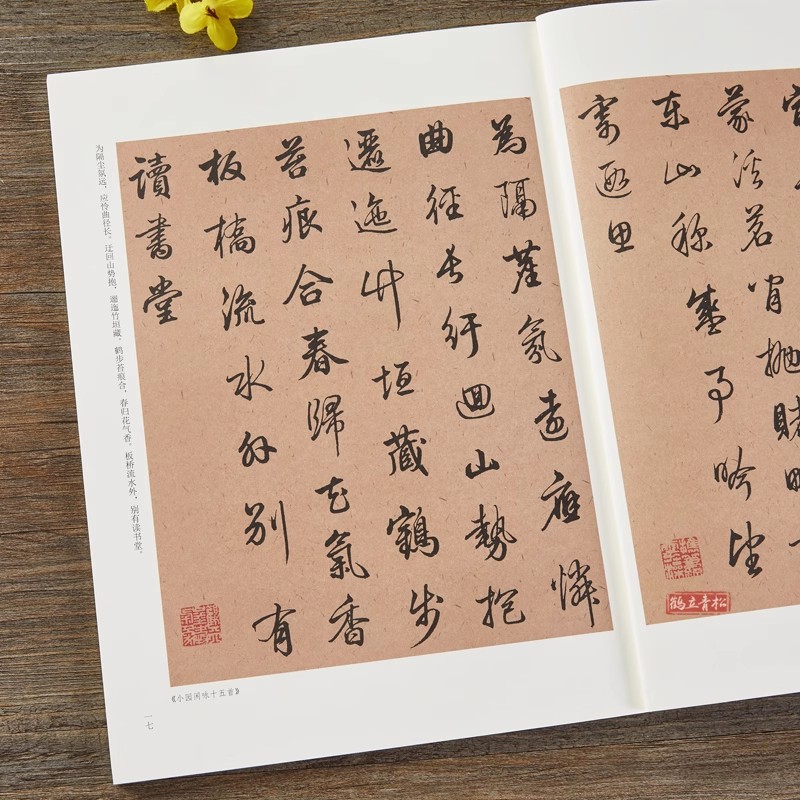 东山称盛事吟望
寄遐思
鶴立青松
為隔塵氛遠應憐
曲徑長紆迴山勢抱
邐迤竹垣藏鶴步
苔痕合春歸花氣香
板橋流水外別有
讀書堂
为隔尘氛远，应怜曲径长。迂回山势抱，邐迤竹垣藏。鹤步苔痕合，春归花气香。板桥流水外，别有读书堂。
《小园闲咏十五首》
一七